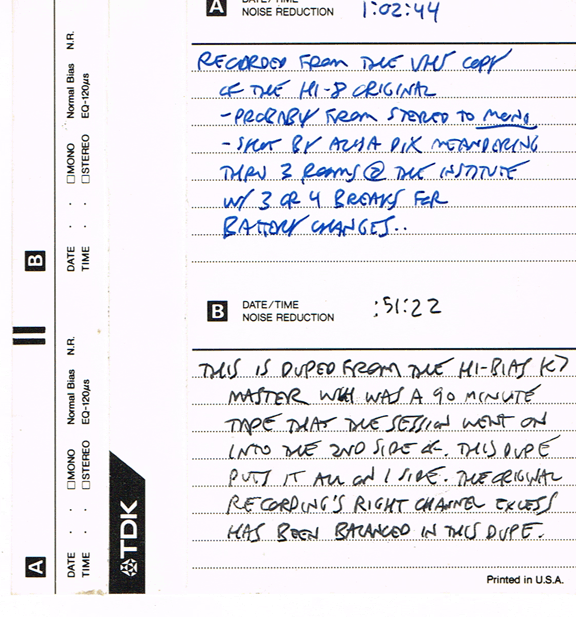 A DATE/TIME
NOISE REDUCTION 1:02:44
RECORDED FROM THE VHS COPY
OF THE HI-8 ORIGINAL
-PROBABLY FROM STEREO TO MONO
-SHOT BY ALISA DIX MEANDERING
THRU 3 ROOMS @ THE INSTITUTE
W/ 3 OR 4 BREAKS FOR
BATTERY CHANGES..
B DATE/TIME :51:22
NOISE REDUCTION
THIS IS DUPED FROM THE HI-BIAS K7
MASTER WCH WAS A 90 MINUTE
TAPE THAT THE SESSION WENT ON
INTO THE 2ND SIDE OF. THIS DUPE
PUTS IT ALL ON 1 SIDE. THE ORIGINAL
RECORDING'S RIGHT CHANNEL EXCESS
HAS BEEN BALANCED IN THIS DUPE.
Printed in U.S.A.
A
DATE . . □MONO Normal Bias N.R.
TIME . . □STEREO EQ-120µs
B
DATE . . □MONO Normal Bias N.R.
TIME . . □STEREO EQ-120µs
TDK